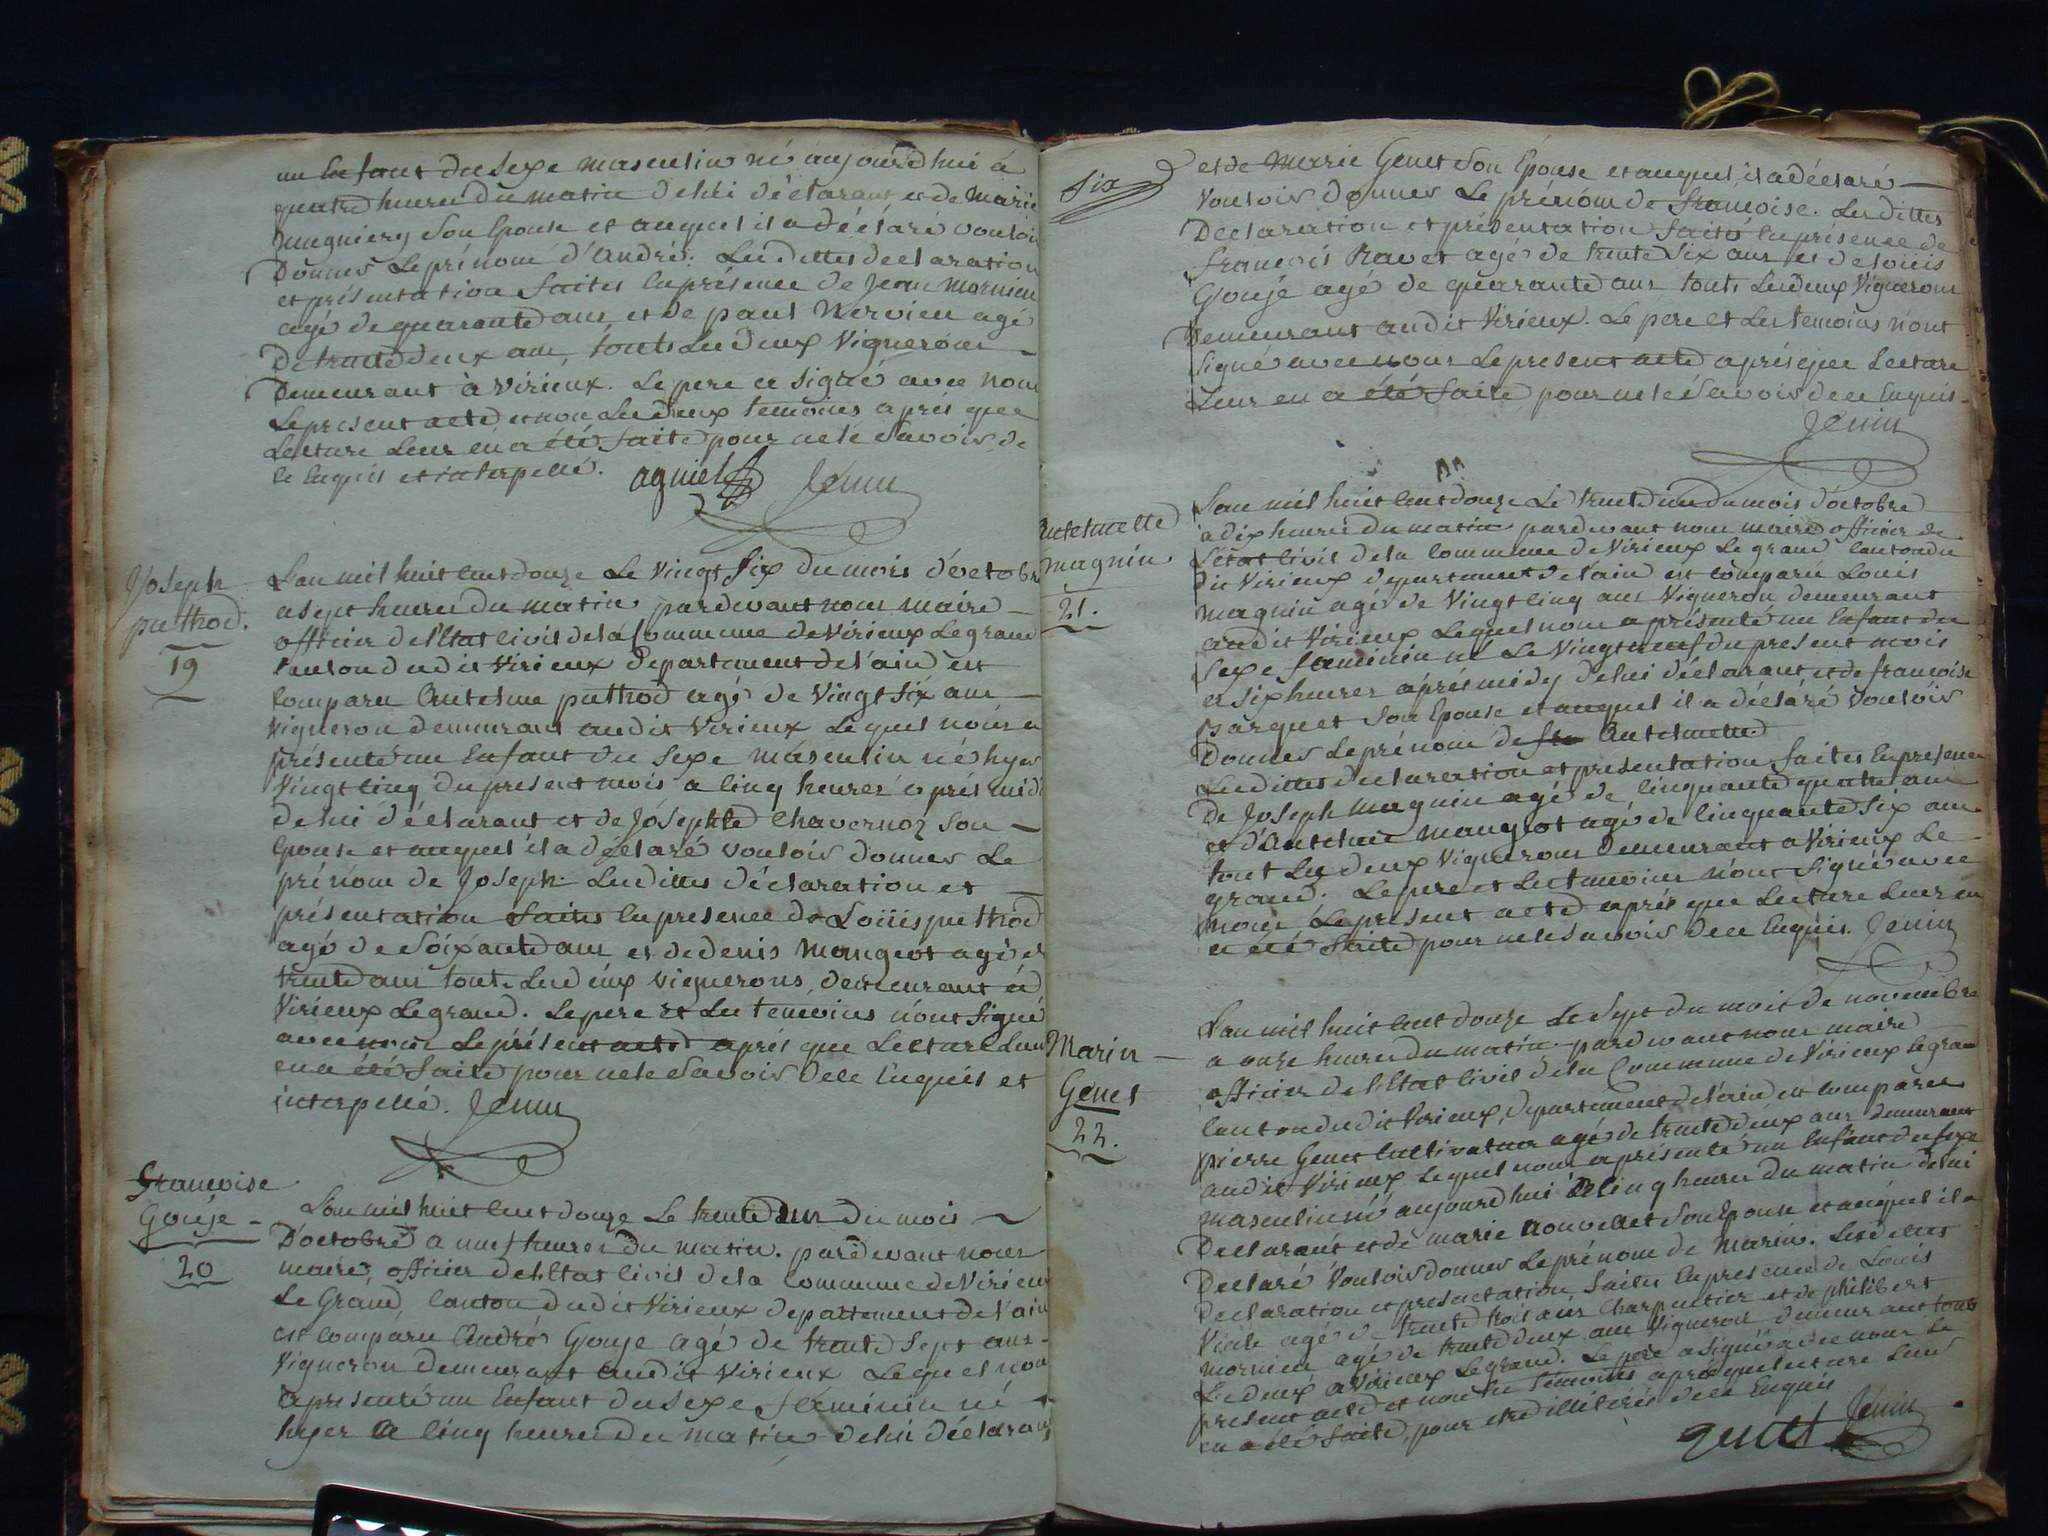 un Enfant du Sexe masculin né aujourdhui à
quatre heures du matin de lui déclarant et de Marie
Jugniery Son Epouse et auquel il a déclaré vouloir
Donner Le prénom d'André. Lesdittes declaration
et présentation faites En présence de Jean Mornieu
agé de quarante ans et de paul Nervieu agé
De trente deux ans, touts Les deux Vignerons
Demeurant à Virieux. Le pere a signé avec nous
Le present acte et non Les deux temoins aprés que
Lecture Leur en a été faite pour ne le Savoir de
ce Enquis et interpellé. agniel Jenin
Joseph
puthod.
19
L'an mil huit Cent douze Le Vingt Six du mois d'octobre
a sept heures du matin pardevant nous maire
officier de l'Etat Civil de la Commune de Virieux Le grand
Canton dudit Virieux Departement de l'ain est
Comparu Antelme puthod agé de Vingt Six ans
Vigneron demeurant audit Virieux Lequel nous a
présenté un Enfant du Sexe masculin né hyer
Vingt Cinq du present mois a Cinq heures aprés midi
de lui déclarant et de Joséphte Chavernoz Son
Epouse et auquel il a déclaré vouloir donner Le
prénom de Joseph. Lesdittes déclaration et
présentation faites En presence de Loüis puthod
agé de Soixante ans et de denis Mangeot agé de
trente ans touts Les deux vignerons, demeurant à
Virieux Le grand. Le pere et Les temoins n'ont Signé
avec nous Le présent acte aprés que Lecture Leur
en a été faite pour ne le Savoir de ce Enquis et
interpellé. Jenin
Françoise
Gouje
20
L'an mil huit Cent douze Le trente un du mois
D'octobre a neuf heures du matin. pardevant nous
maire officier de l'Etat Civil de la Commune de Virieux
Le Grand, Canton dudit Virieux departement de l'ain
est Comparu André Gouje agé de trente Sept ans
Vigneron demeurant audit Virieux Lequel nous
a presenté un Enfant du Sexe féminin né
hyer a Cinq heures du matin de lui déclarant
six
et de Marie Genet Son Epouse et auquel il a déclaré
Vouloir donner Le prénom de françoise. Lesdittes
Déclaration et présentation faites En présence de
françois Ravet agé de trente Six ans et de Loüis
Gouje agé de quarante ans touts Les deux Vignerons
Demeurant audit Virieux. Le pere et Les temoins n'ont
Signé avec nous Le present acte aprés que Lecture
Leur en a été faite pour ne le Savoir de ce Enquis.
Jenin
Antelmette
magnin
21.
L'an mil huit Cent douze Le trente un du mois d'octobre
a dix heures du matin pardevant nous maire officier de
L'état Civil de la Commune de Virieux Le grand Canton du
dit Virieux departement de l'ain est Comparu Louis
magnin agé de Vingt Cinq ans Vigneron demeurant
audit Virieux Lequel nous a présenté un Enfant du
Sexe féminin né Le Vingt neuf du present mois
a six heures aprés midy de lui déclarant, et de françoise
Barquet Son Epouse et auquel il a déclaré vouloir
Donner Le prénom de Antelmette
Lesdittes declaration et presentation faites En presence
De Joseph magnin agé de Cinquante quatre ans
et d'Antelme mangeot agé de Cinquante Six ans
touts Les deux Vignerons demeurant a Virieux Le
grand. Le pere et Les temoins n'ont Signé avec
nous Le present acte aprés que Lecture Leur en
a été faite pour ne le Savoir de ce Enquis. Jenin
Marin
Genet
22.
L'an mil huit Cent douze Le Sept du mois de novembre
a onze heures du matin pardevant nous maire
officier de l'Etat Civil de la Commune de Virieux le grand
Canton dudit Virieux, departement de l'ain est Comparu
pierre Genet Cultivateur agé de trente deux ans demeurant
audit Virieux Lequel nous a présenté un Enfant du Sexe
masculin né aujourdhui à Cinq heures du matin de lui
Declarant et de marie nouvellet Son Epouse et auquel il a
Declaré Vouloir donner Le prénom de Marin. Lesdittes
Declaration et presentation, faites En presence de Louis
agé de trente trois ans Charpentier et de philibert
mornieu agé de trente deux ans Vigneron demeurant touts
Les deux a Virieux Le grand. Le pere a Signé avec nous Le
present acte et non Les temoins aprés que Lecture Leur
en a été faite, pour etre illitérés de ce Enquis
genet Jenin